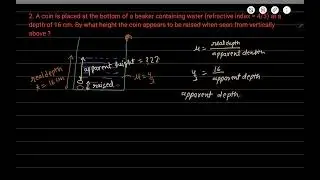 2. A coin is placed at the bottom of a beaker containing water (refractive index = 4/3) at a
depth of 16 cm. By what height the coin appears to be raised when seen from vertically
above ?
real depth
= 16 cm
apparent height = ???
raised
μ = 4/3
μ = real depth / apparent depth
4/3 = 16 / apparent depth
apparent depth